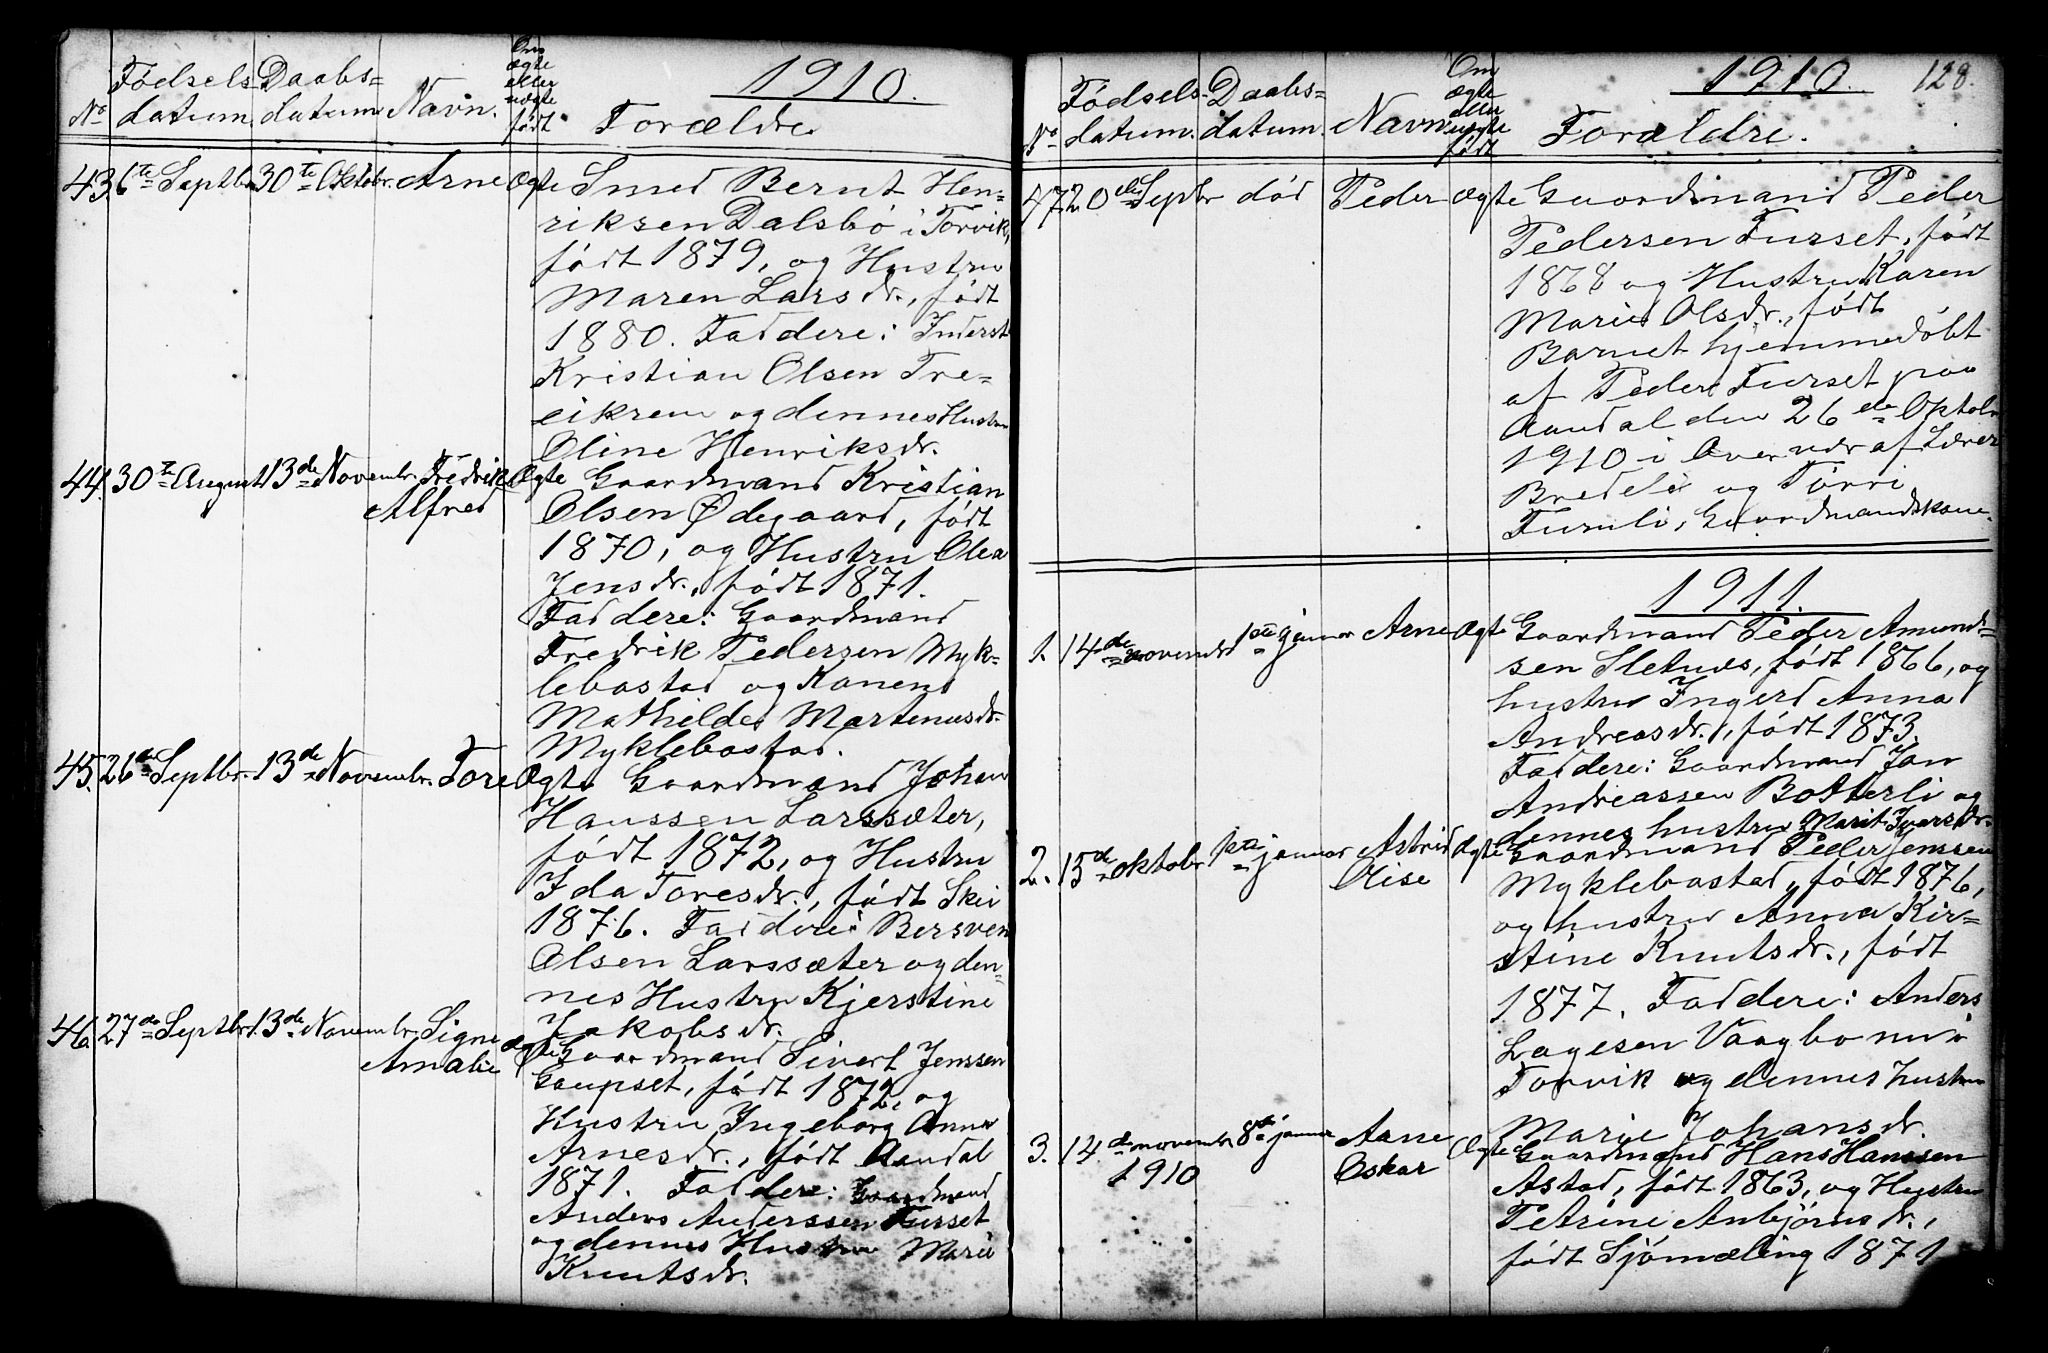 1910.
No Fødsels datum. Daabs= datum. Navn. Om ægte eller uægte født. Forældre.
43. 6te Septbr. 30te Oktobr. Arne Ægte Smed Bernt Hen=
riksen Dalsbø i Torvik,
født 1879, og Hustru
Maren Larsdr., født
1880. Faddere: Inderst
Kristian Olsen Tre=
eikrem og dennes Hustru
Oline Henriksdr.
44. 30te August 13de Novembr. Fredrik Ægte Gaardmand Kristian
Alfred Olsen Ødegaard, født
1870, og Hustru Olea
Jensdr., født 1871.
Faddere: Gaardmand
Fredrik Pedersen Myk=
lebostad og Konen
Mathilde Martenusdr.
Myklebostad.
45. 26de Septbr. 13de Novembr. Tore Ægte Gaardmand Johan
Hanssen Larssæter,
født 1872, og Hustru
Ida Toresdr., født Skei
1876. Faddere: Bersven
Olsen Larssæter og den=
nes Hustru Kjerstine
Jakobsdr.
46. 27de Septbr. 13de Novembr. Signe Ægte Gaardmand Sivert Jenssen
Amalie Gaupset, født 1872, og
Hustru Ingeborg Anna
Arnesdr., født Aandal
1871. Faddere: Gaardmand
Anders Anderssen Furset
og dennes Hustru Marie
Knutsdr.
1910. 128.
No Fødsels- datum. Daabs= datum. Navn Om ægte eller uægte født Forældre.
47. 20de Septbr død Peder Ægte Gaardmand Peder
Pedersen Furset, født
1868 og Hustru Karen
Marie Olsdr., født
Barnet hjemmedøbt
af Peder Furset paa
Aandal den 26de Oktobr
1910 i Overvær af Lærer
Bredeli og
Furuli, Gaardmandskone.
1911.
1. 14de novembr 1ste januar Arne Ægte Gaardmand Peder Amund=
sen Sletnes, født 1866, og
hustru Ingerd Anna
Andreasdr., født 1873.
Faddere: Gaardmand Jon
Andreassen Botterli og
dennes hustru Marit Ivarsdr.
2. 15de oktobr 1ste januar Astrid Ægte Gaardmand Peder Jenssen
Olise Myklebostad, født 1876,
og hustru Anna Kir=
stine Knutsdr., født
1877. Faddere: Anders
Lagesen Vaagbø nu i
Torvik og dennes hustru
Marie Johansdr.
3. 14de novembr 8de januar Arne Ægte Gaardmand Hans Hanssen
1910 Oskar Astad, født 1863, og Hustru
Petrine Anbjørnsdr.,
født Sjømæling 1871